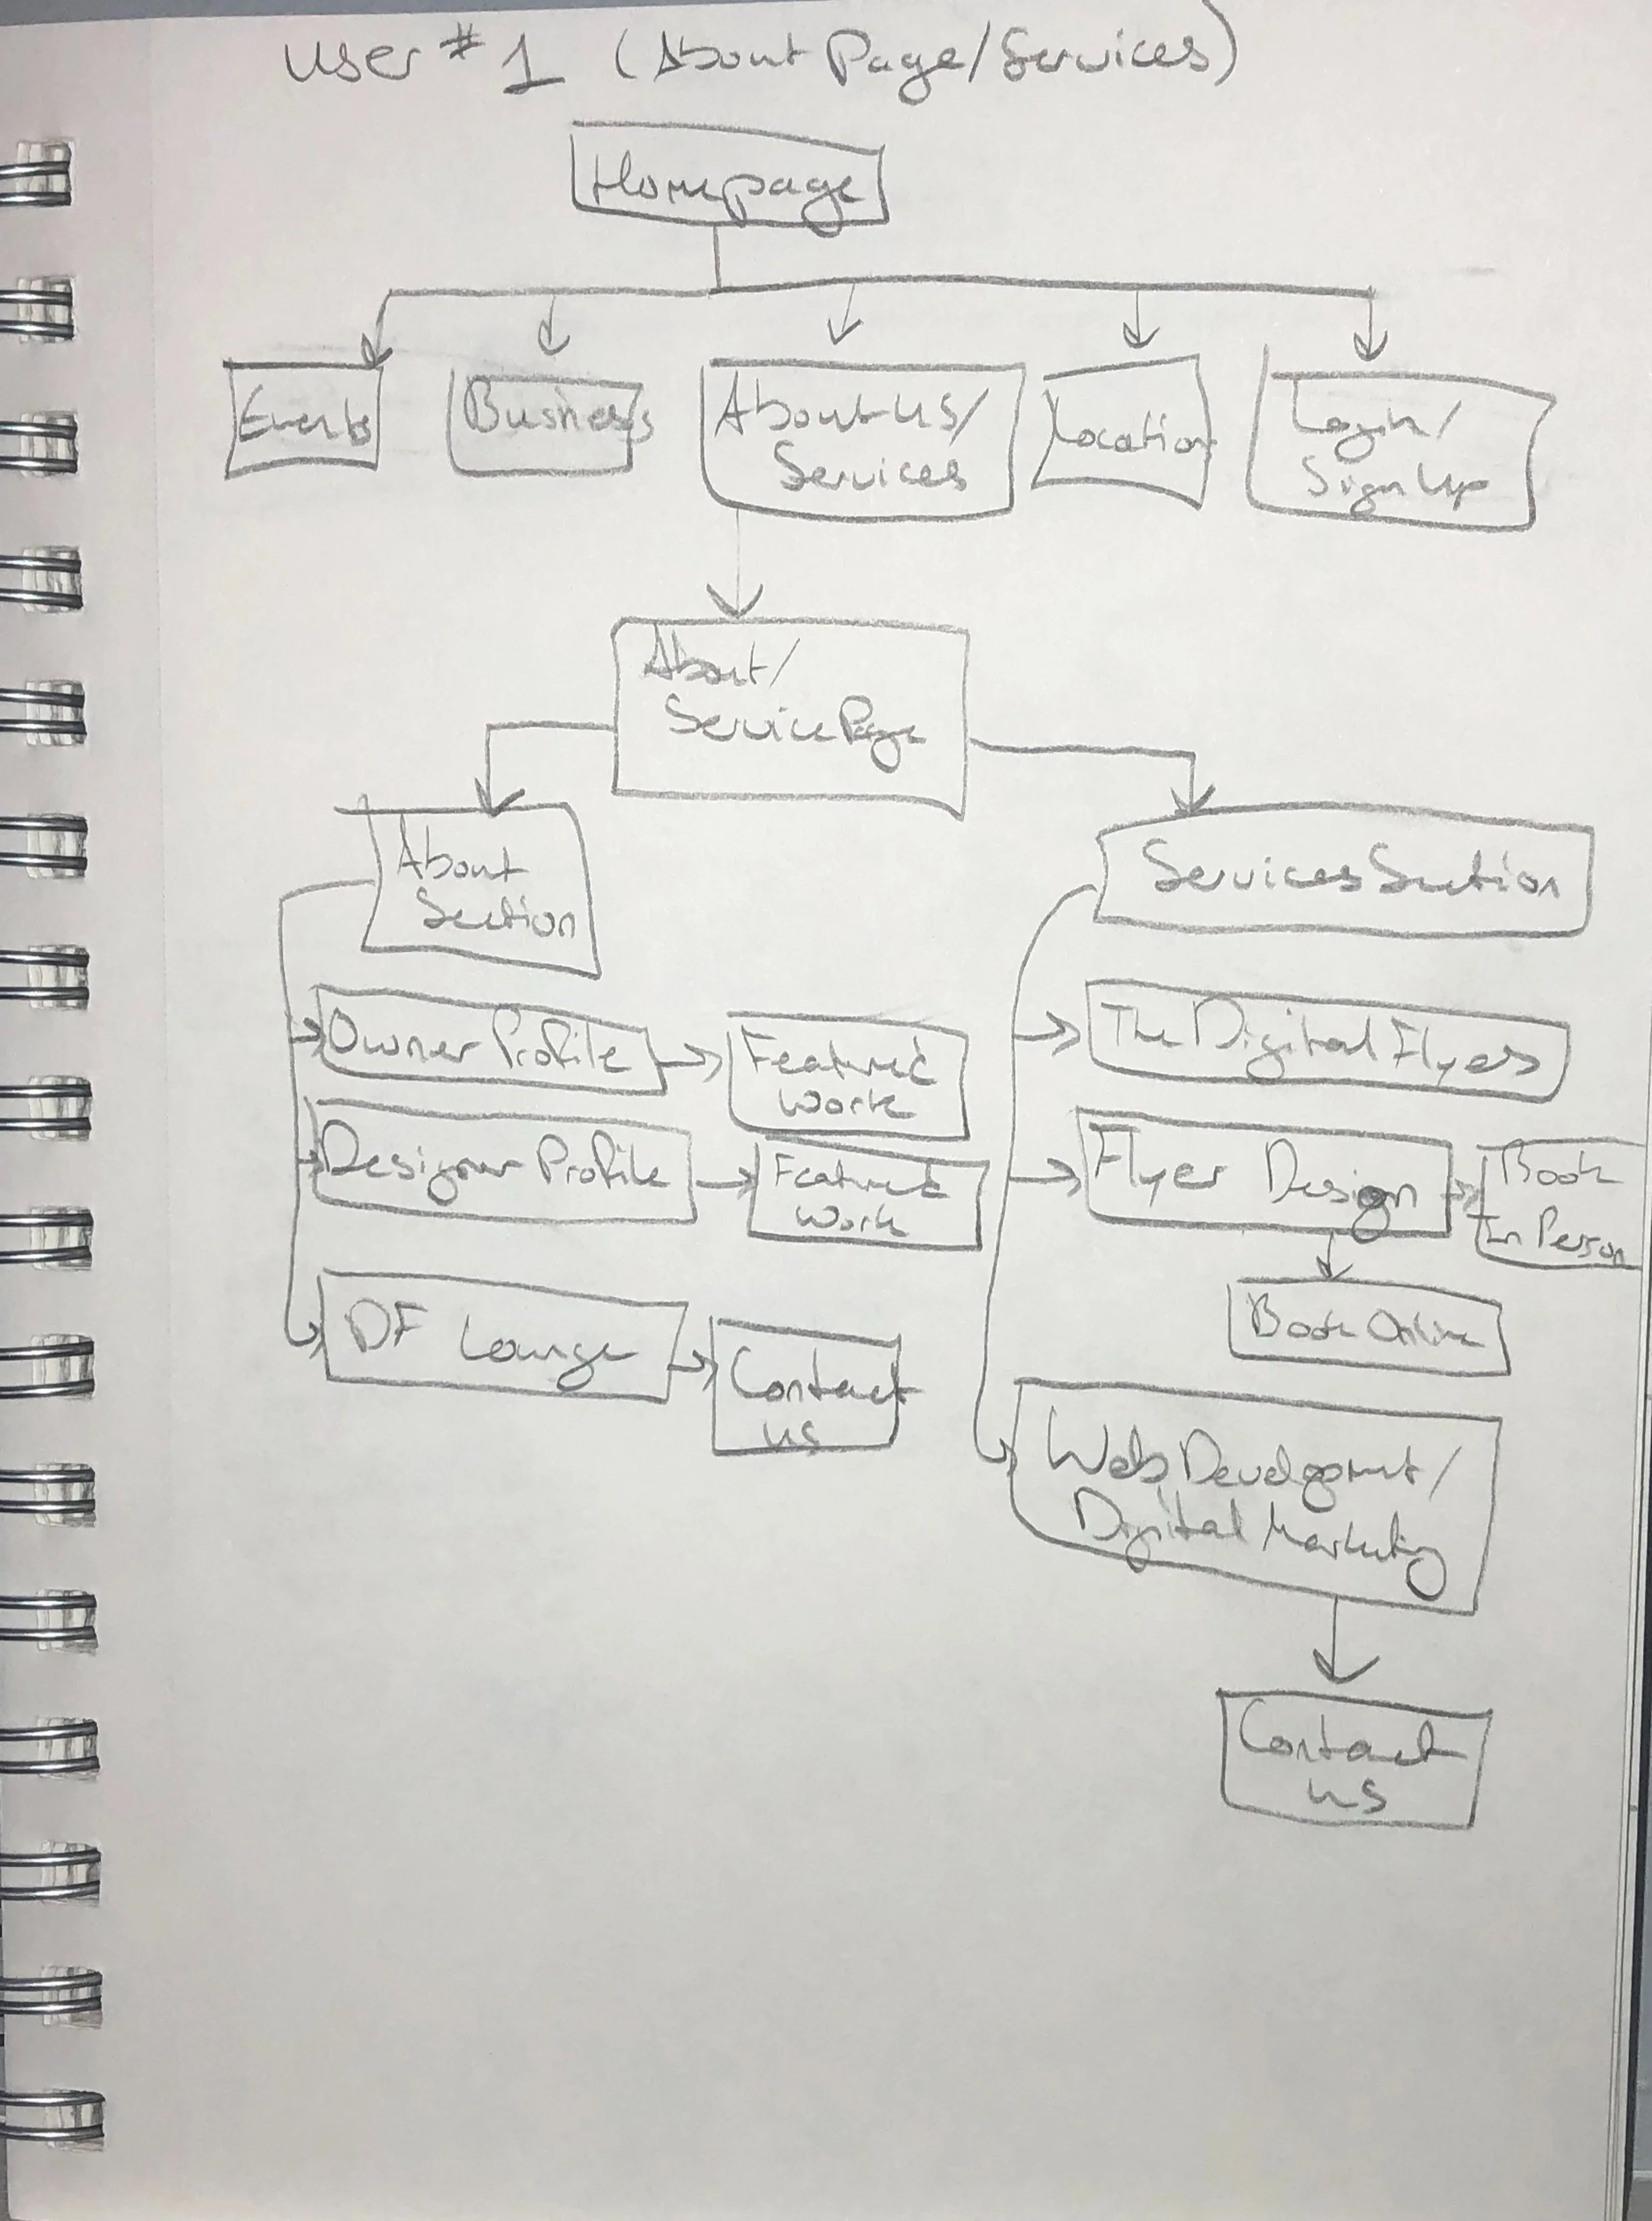 User #1 (About Page/Services)
Homepage
Events
Business
About us/
Services
Location
Login/
Sign Up
About/
Service Page
About
Section
Services Section
Owner Profile
Featured
Work
The Digital Flyers
Designer Profile
Featured
Work
Flyer Design
Book
In Person
Book Online
DF Lounge
Contact
us
Web Development/
Digital Marketing
Contact
us